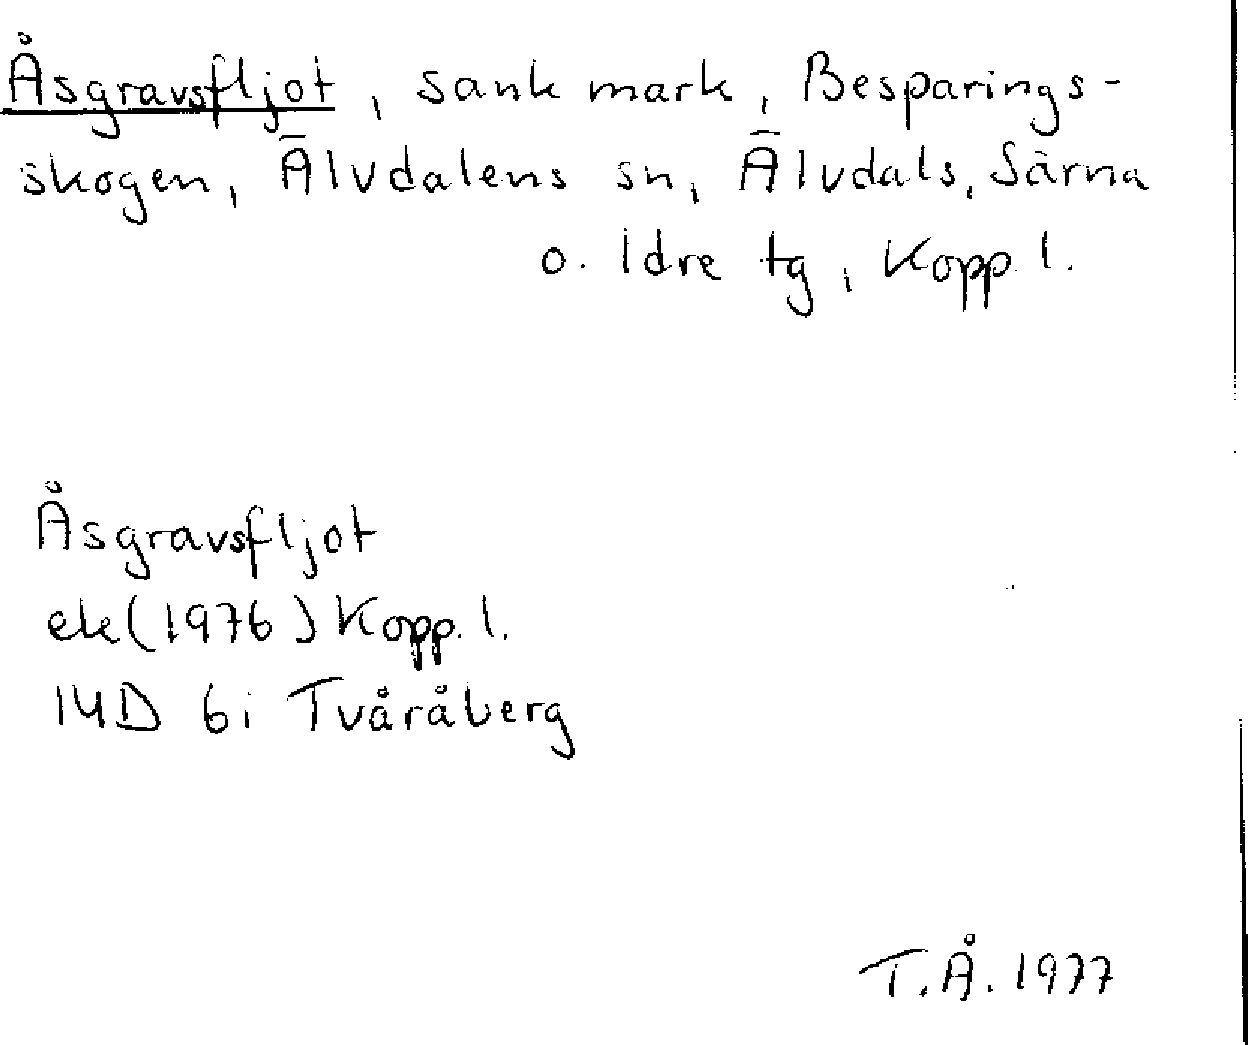 Åsgravsfljot, sank mark, Besparings-
skogen, Älvdalens sn, Älvdals, Särna
o. Idre tg, Kopp. l.
Åsgravsfljot
ek (1976) Kopp. l.
14D 6i Tvåråberg
T.Å. 1977